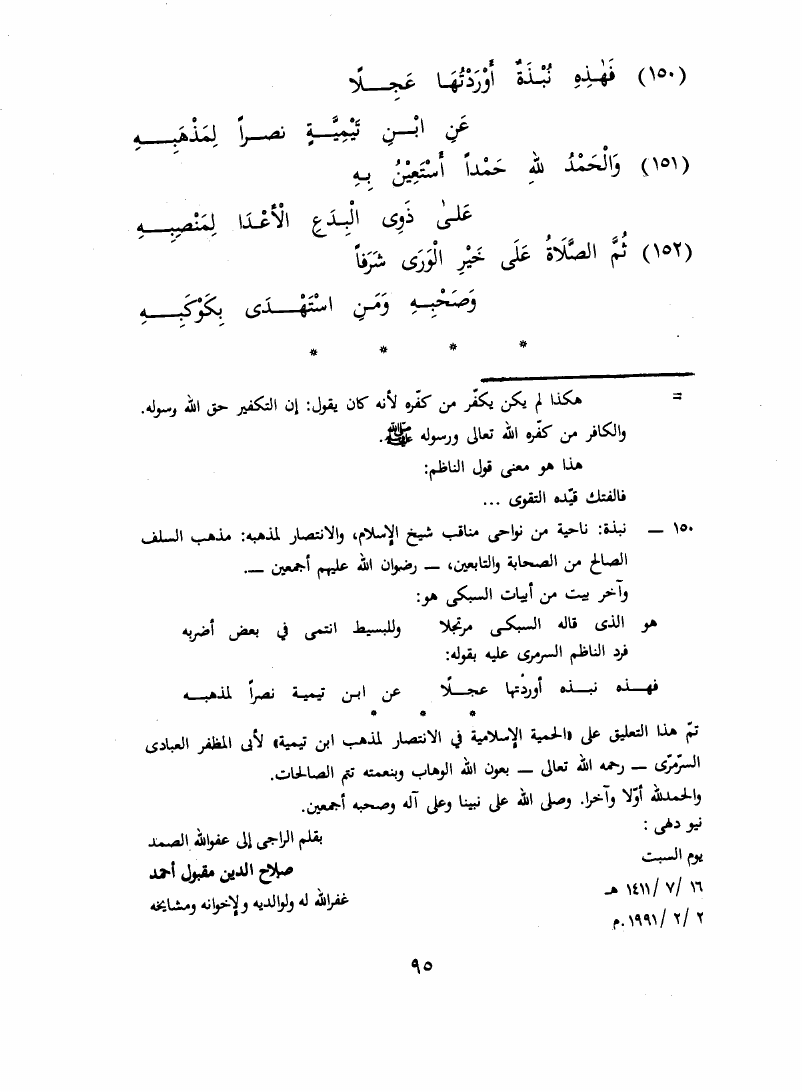 (١٥٠) فَهٰذِهِ نُبْذَةٌ أَوْرَدْتُهَا عَجِــلًا
عَنِ ابْــنِ تَيْمِيَّــةٍ نصــراً لِمَذْهَبِــــهِ
(١٥١) وَالْحَمْدُ للهِ حَمْداً أَسْتَعِيْنُ بِـهِ
عَلـىٰ ذَوِى الْبِـدَعِ الْأَعْـدَا لِمَنْصِبِــــهِ
(١٥٢) ثُمَّ الصَّلَاةُ عَلَى خَيْرِ الْوَرَى شَرَفاً
وَصَحْبِــهِ وَمَـنِ اسْتَهْــدَى بِكَوْكَبِــــهِ
* * * *
= هكذا لم يكن يكفّر من كفّره لأنه كان يقول: إن التكفير حق الله ورسوله.
والكافر من كفّره الله تعالى ورسوله ﷺ.
هذا هو معنى قول الناظم:
فالفتك قيّده التقوى ...
١٥٠ ــ نبذة: ناحية من نواحى مناقب شيخ الإسلام، والانتصار لمذهبه: مذهب السلف
الصالح من الصحابة والتابعين، ــ رضوان الله عليهم أجمعين ــ.
وآخر بيت من أبيات السبكى هو:
هو الذى قاله السبكـى مرتجلا وللبسيط انتمى في بعض أضربه
فرد الناظم السرمرى عليه بقوله:
فهــذه نبــذه أوردْتها عجــلًا عن ابـن تيميـة نصراً لمذهبــه
* * *
تمّ هذا التعليق على «الحمية الإسلامية في الانتصار لمذهب ابن تيمية» لأبى المظفر العبادى
السرّمرّى ــ رحمه الله تعالى ــ بعون الله الوهاب وبنعمته تتم الصالحات.
والحمدلله أوّلا وآخرا. وصلى الله على نبينا وعلى آله وصحبه أجمعين.
نيو دهى :
بقلم الراجى إلى عفوالله الصمد
يوم السبت
صلاح الدين مقبول أحمد
١٦ /٧ /١٤١١ هـ
غفرالله له ولوالديه ولإخوانه ومشايخه
٢ /٢ /١٩٩١.م
٩٥